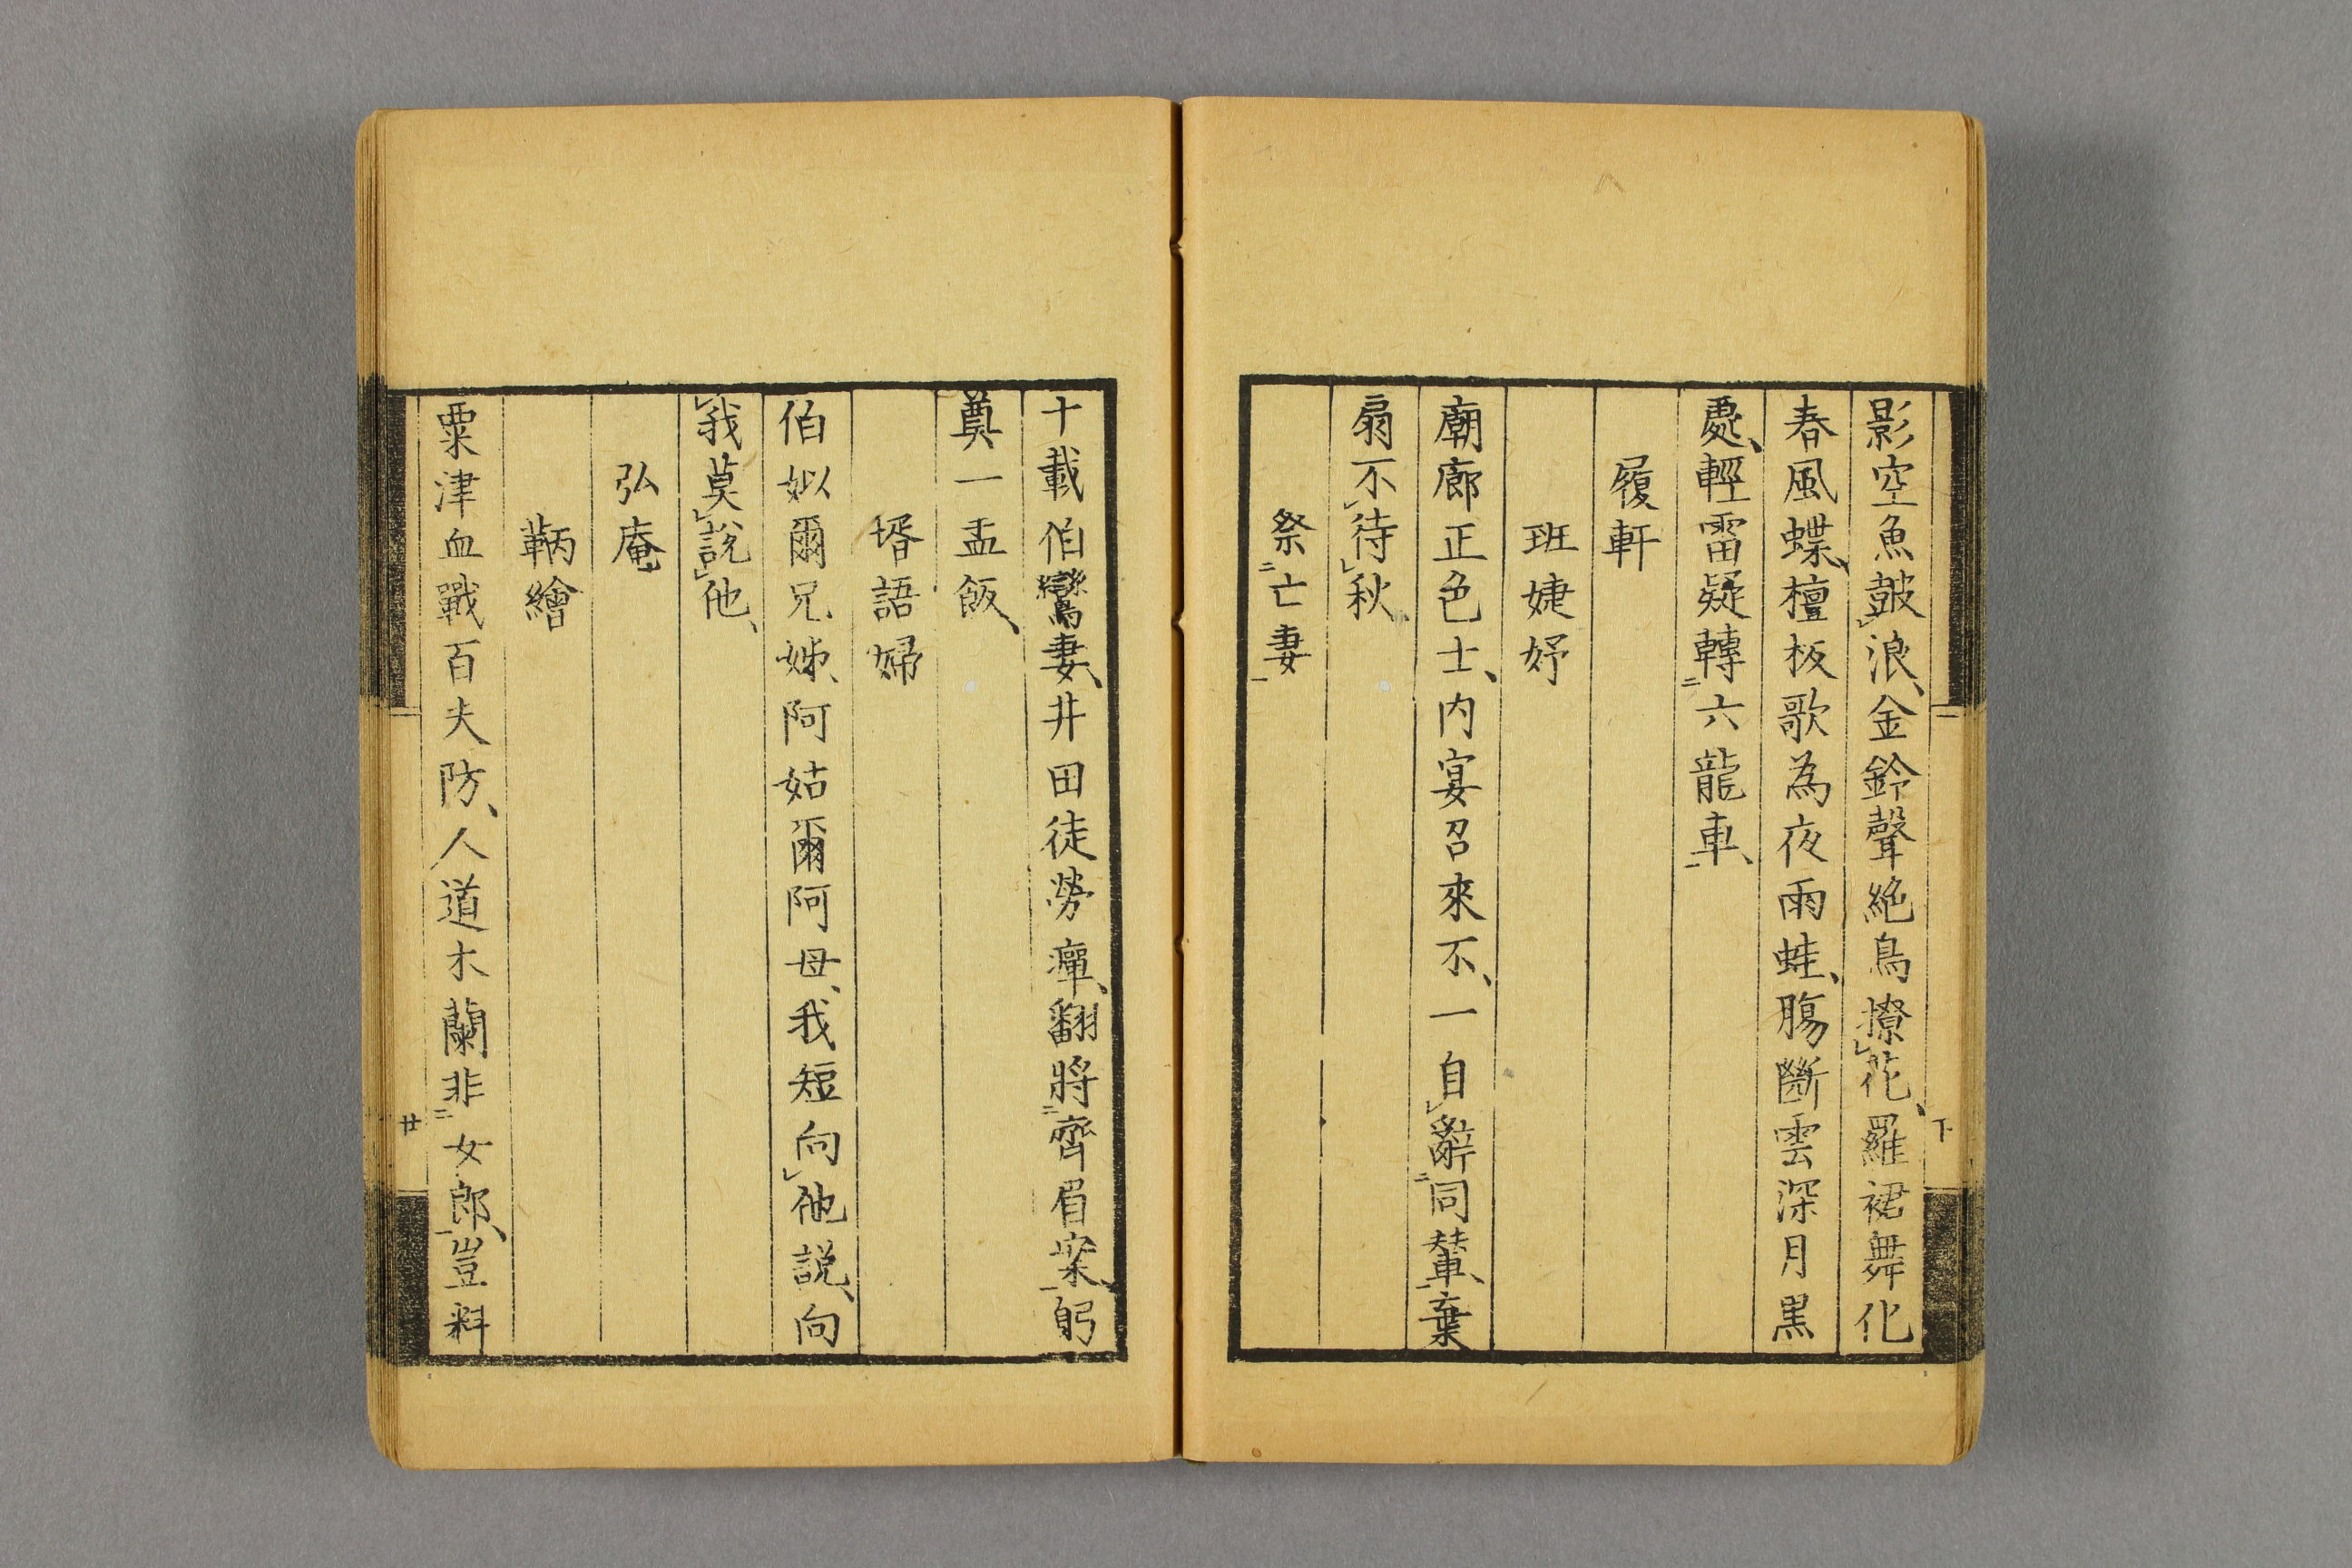 影空魚皷浪、金鈴聲絶鳥撩花、羅裙舞化
春風蝶、檀板歌為夜雨蛙、膓斷雲深月黒
處、輕雷疑轉二六龍車一、
履軒
班婕妤
廟廊正色士、内宴召來不、一自辭二同輦一、棄
扇不待秋、
祭二亡妻一
下
十載伯鸞妻、井田徒勞癉、翻將二齊眉案一、躬
奠一盂飯、
壻語婦
伯姒爾兄姊、阿姑爾阿母、我短向他説、向
我莫説他、
弘庵
鞆繪
粟津血戰百夫防、人道木蘭非二女郎一、豈料
廿